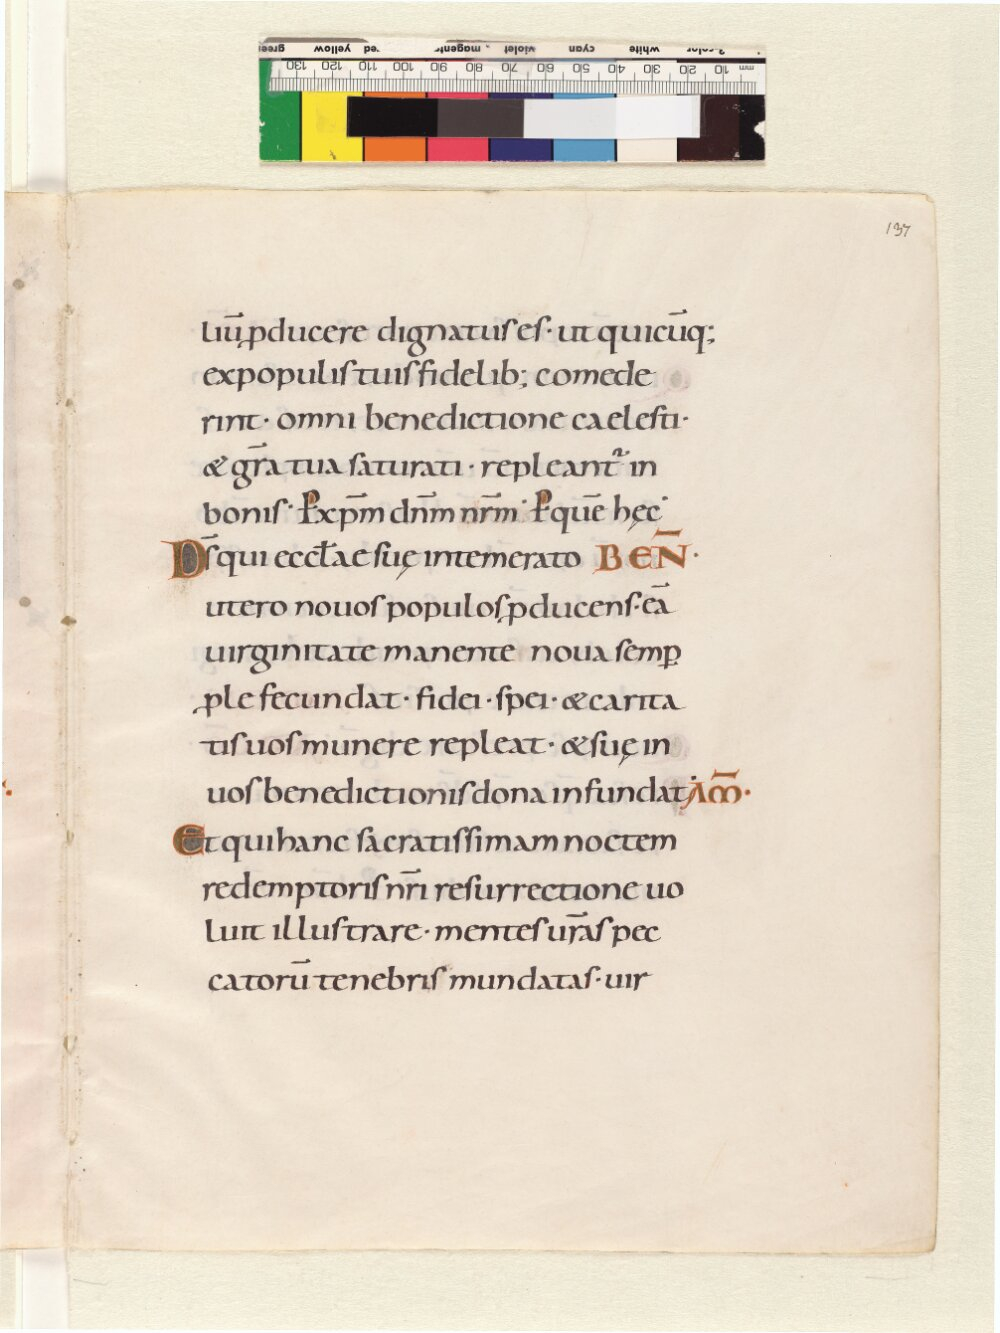 137
liū ꝓducere dignatus es· ut quicūq;
ex populis tuis fidelib; comede
rint· omni benedictione caelesti·
& gr̄a tua saturati· repleant᷑ in
bonis· P xp̄m dn̄m nr̄m· P quē hęc·
Ds̄ qui eccl̄ae suę intemerato BEN̄·
utero nouos populos ꝓducens· eā
uirginitate manente noua semꝑ
ꝓle fecundat· fidei· spei· & carita
tis uos munere repleat· & suę in
uos benedictionis dona infundat· AM̄·
Et qui hanc sacratissimam noctem
redemptoris nr̄i resurrectione uo
luit illustrare· mentes ur̄as pec
catorū tenebris mundatas· uir
mm 10 20 30 40 50 60 70 80 90 100 110 120 130
white cyan violet magenta red yellow green